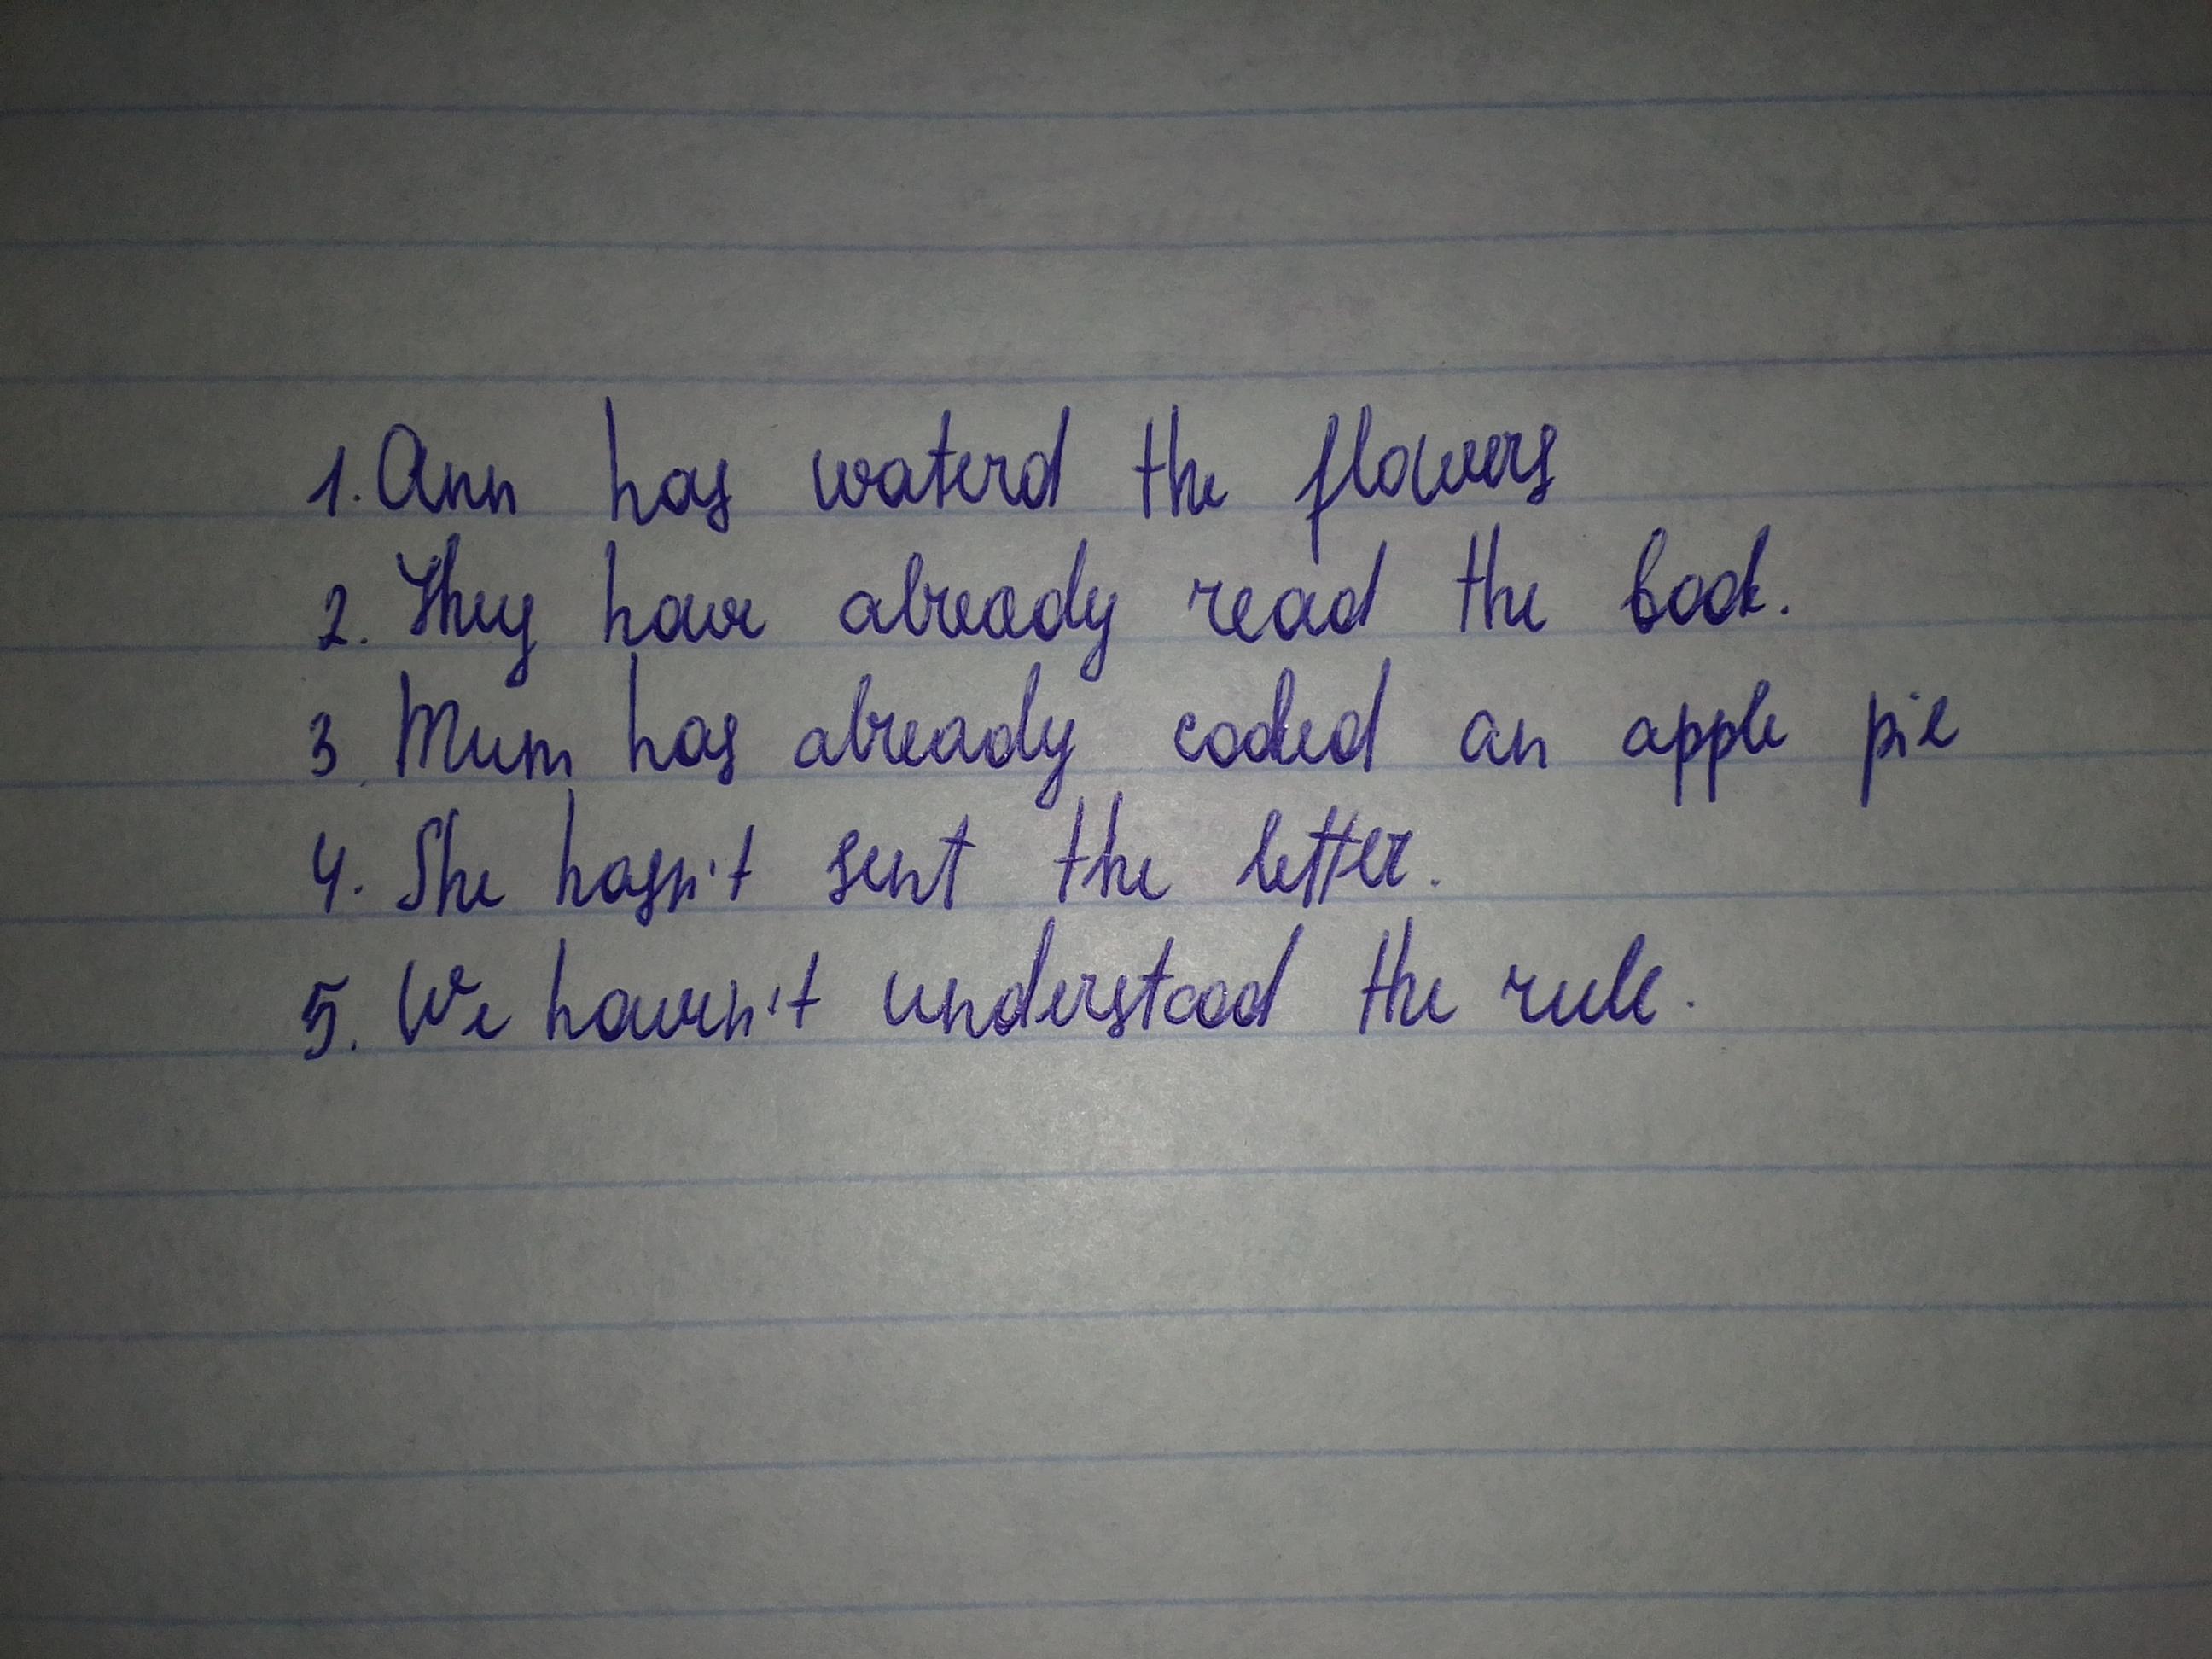 1. Ann has waterd the flowers
2. They have already read the book.
3. Mum has already cooked an apple pie
4. She hasn't sent the letter.
5. We haven't understood the rule.